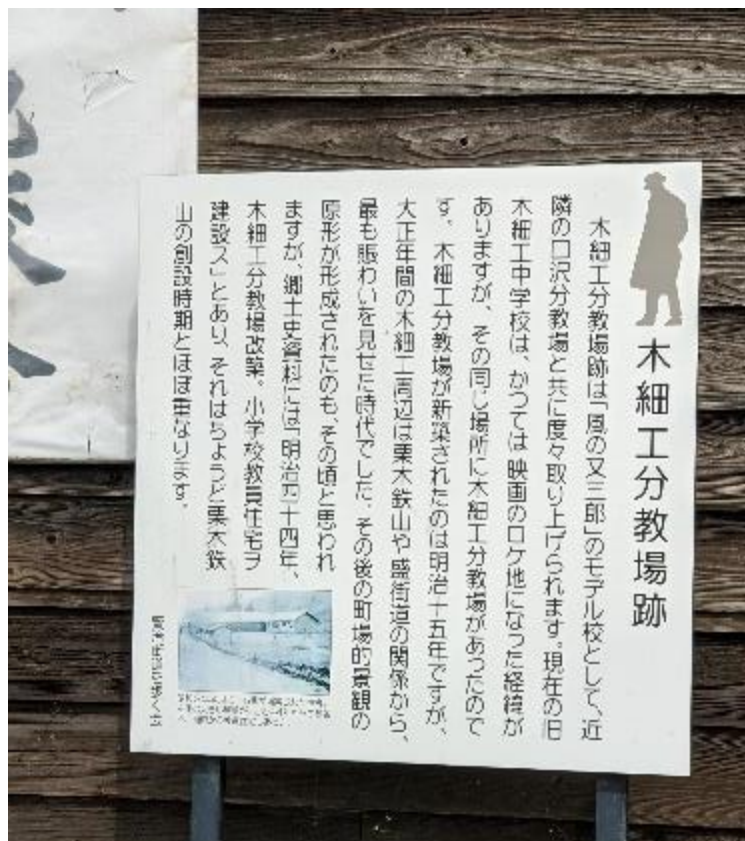 木細工分教場跡
木細工分教場跡は「風の又三郎」のモデル校として、近
隣の口沢分教場と共に度々取り上げられます。現在の旧
木細工中学校は、かつては映画のロケ地になった経緯が
ありますが、その同じ場所に木細工分教場があったので
す。木細工分教場が新築されたのは明治十五年ですが、
大正年間の木細工周辺は栗木鉄山や盛街道の関係から、
最も賑わいを見せた時代でした。その後の町場的景観の
原形が形成されたのも、その頃と思われ
ますが、郷土史資料には「明治四十四年、
木細工分教場改築。小学校教員住宅ヲ
建設ス」とあり、それはちょうど栗木鉄
山の創設時期とほぼ重なります。